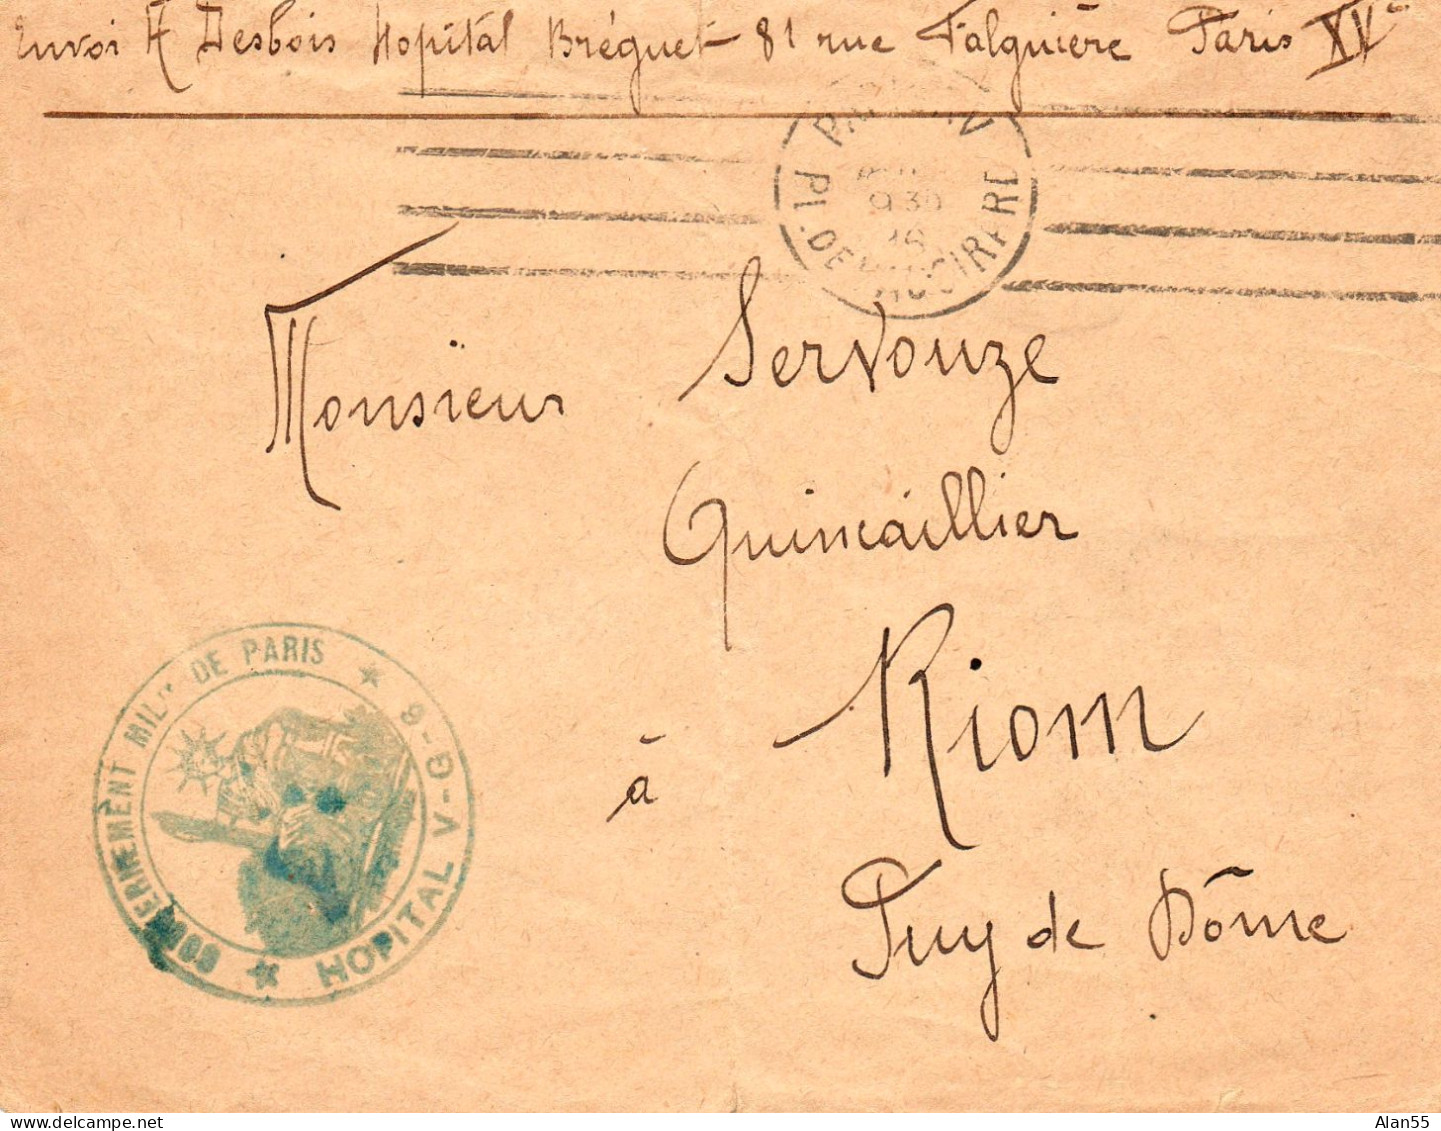 Envoi A Desbois Hopital Bréguet 81 rue Falguière Paris XVe
PL. DE VAUGIRARD
930
16
Monsieur Servouze
Quincaillier
à Riom
Puy de Dôme
GOUVERNEMENT MILre DE PARIS ★
HOPITAL V-G-9 ★
Alan55